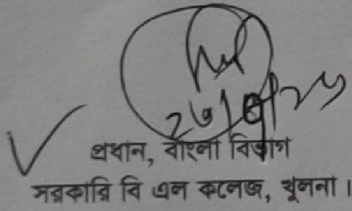 প্রধান, বাংলা বিভাগ
সরকারি বি এল কলেজ, খুলনা।